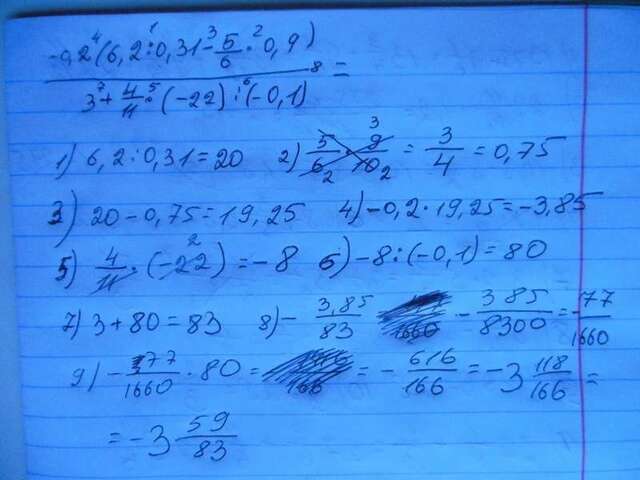 -0,2⁴(6,2¹:0,31-³5/6·²0,9)
3⁷+4/11·⁵(-22):⁶(-0,1) ⁸=
1) 6,2:0,31=20 2) 5/6₂·9³/10₂=3/4=0,75
3) 20-0,75=19,25 4) -0,2·19,25=-3,85
5) 4/11·(-22²)=-8 6) -8:(-0,1)=80
7) 3+80=83 8) -3,85/83 -385/8300=-77/1660
9) -77/1660·80= =-616/166=-3 118/166=
=-3 59/83